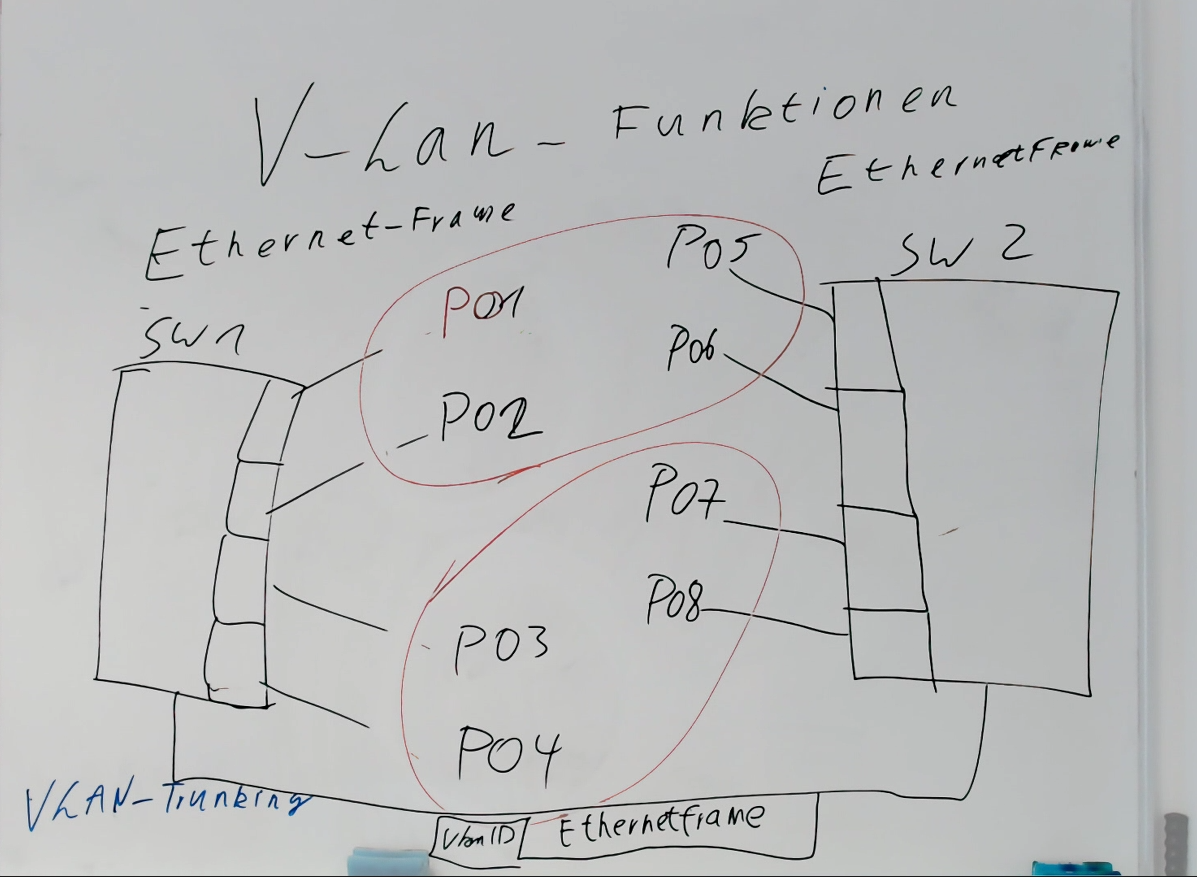 V-Lan-Funktionen
EthernetFrame
Ethernet-Frame
SW 2
P05
P01
SW1
P06
P02
P07
P08
P03
P04
VLAN-Trunking
Vlan ID
Ethernetframe